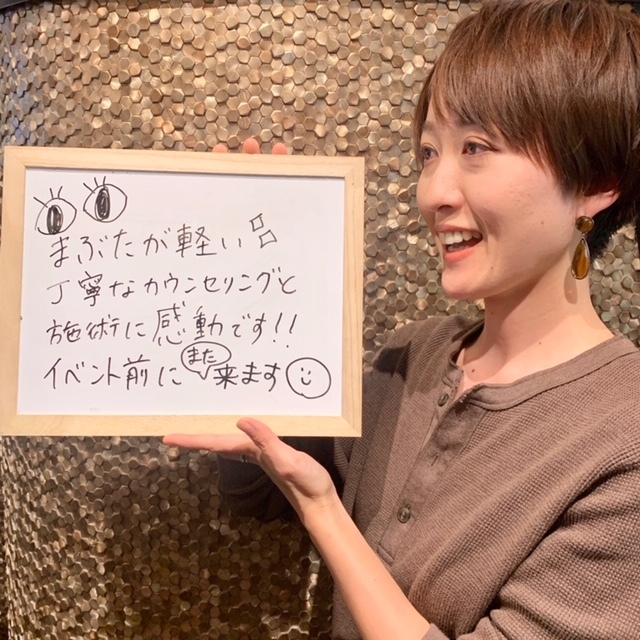 まぶたが軽い
丁寧なカウンセリングと
施術に感動です!!
イベント前にまた来ます